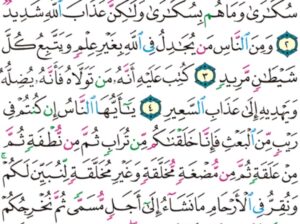 سُكَٰرَىٰ وَمَا هُم بِسُكَٰرَىٰ وَلَٰكِنَّ عَذَابَ ٱللَّهِ شَدِيدٌ
٢ وَمِنَ ٱلنَّاسِ مَن يُجَٰدِلُ فِى ٱللَّهِ بِغَيْرِ عِلْمٍ وَيَتَّبِعُ كُلَّ
شَيْطَٰنٍ مَّرِيدٍ ٣ كُتِبَ عَلَيْهِ أَنَّهُۥ مَن تَوَلَّاهُ فَأَنَّهُۥ يُضِلُّهُۥ
وَيَهْدِيهِ إِلَىٰ عَذَابِ ٱلسَّعِيرِ ٤ يَٰٓأَيُّهَا ٱلنَّاسُ إِن كُنتُمْ فِى
رَيْبٍ مِّنَ ٱلْبَعْثِ فَإِنَّا خَلَقْنَٰكُم مِّن تُرَابٍ ثُمَّ مِن نُّطْفَةٍ ثُمَّ
مِنْ عَلَقَةٍ ثُمَّ مِن مُّضْغَةٍ مُّخَلَّقَةٍ وَغَيْرِ مُخَلَّقَةٍ لِّنُبَيِّنَ لَكُمْ
وَنُقِرُّ فِى ٱلْأَرْحَامِ مَا نَشَآءُ إِلَىٰٓ أَجَلٍ مُّسَمًّى ثُمَّ نُخْرِجُكُمْ